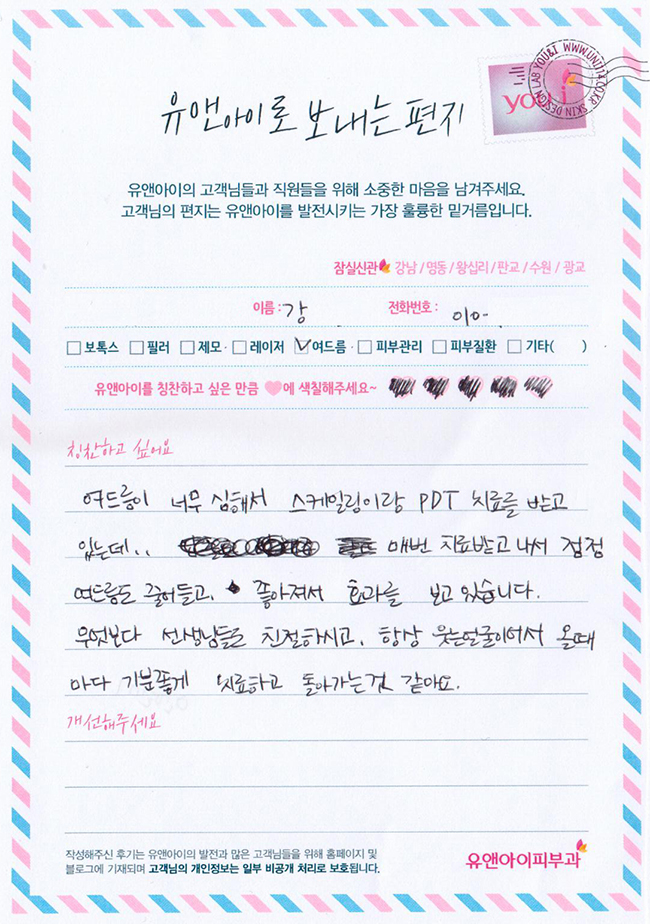 YOU&I WWW.UNI114.CO.KR SKIN DESIGN LAB
you&i
유앤아이로 보내는 편지
유앤아이의 고객님들과 직원들을 위해 소중한 마음을 남겨주세요.
고객님의 편지는 유앤아이를 발전시키는 가장 훌륭한 밑거름입니다.
잠실신관 강남 / 명동 / 왕십리 / 판교 / 수원 / 광교
이름 : 강 전화번호 : 010-
보톡스 필러 제모 · 레이저 여드름 · 피부관리 피부질환 기타( )
유앤아이를 칭찬하고 싶은 만큼 에 색칠해주세요~
칭찬하고 싶어요
여드름이 너무 심해서 스케일링이랑 PDT 치료를 받고
있는데.. 매번 치료받고 나서 점점
여드름도 줄어들고, 좋아져서 효과를 보고 있습니다.
무엇보다 선생님들도 친절하시고, 항상 웃는얼굴이어서 올때
마다 기분좋게 치료하고 돌아가는것 같아요.
개선해주세요
작성해주신 후기는 유앤아이의 발전과 많은 고객님들을 위해 홈페이지 및
블로그에 기재되며 고객님의 개인정보는 일부 비공개 처리로 보호됩니다.
유앤아이피부과